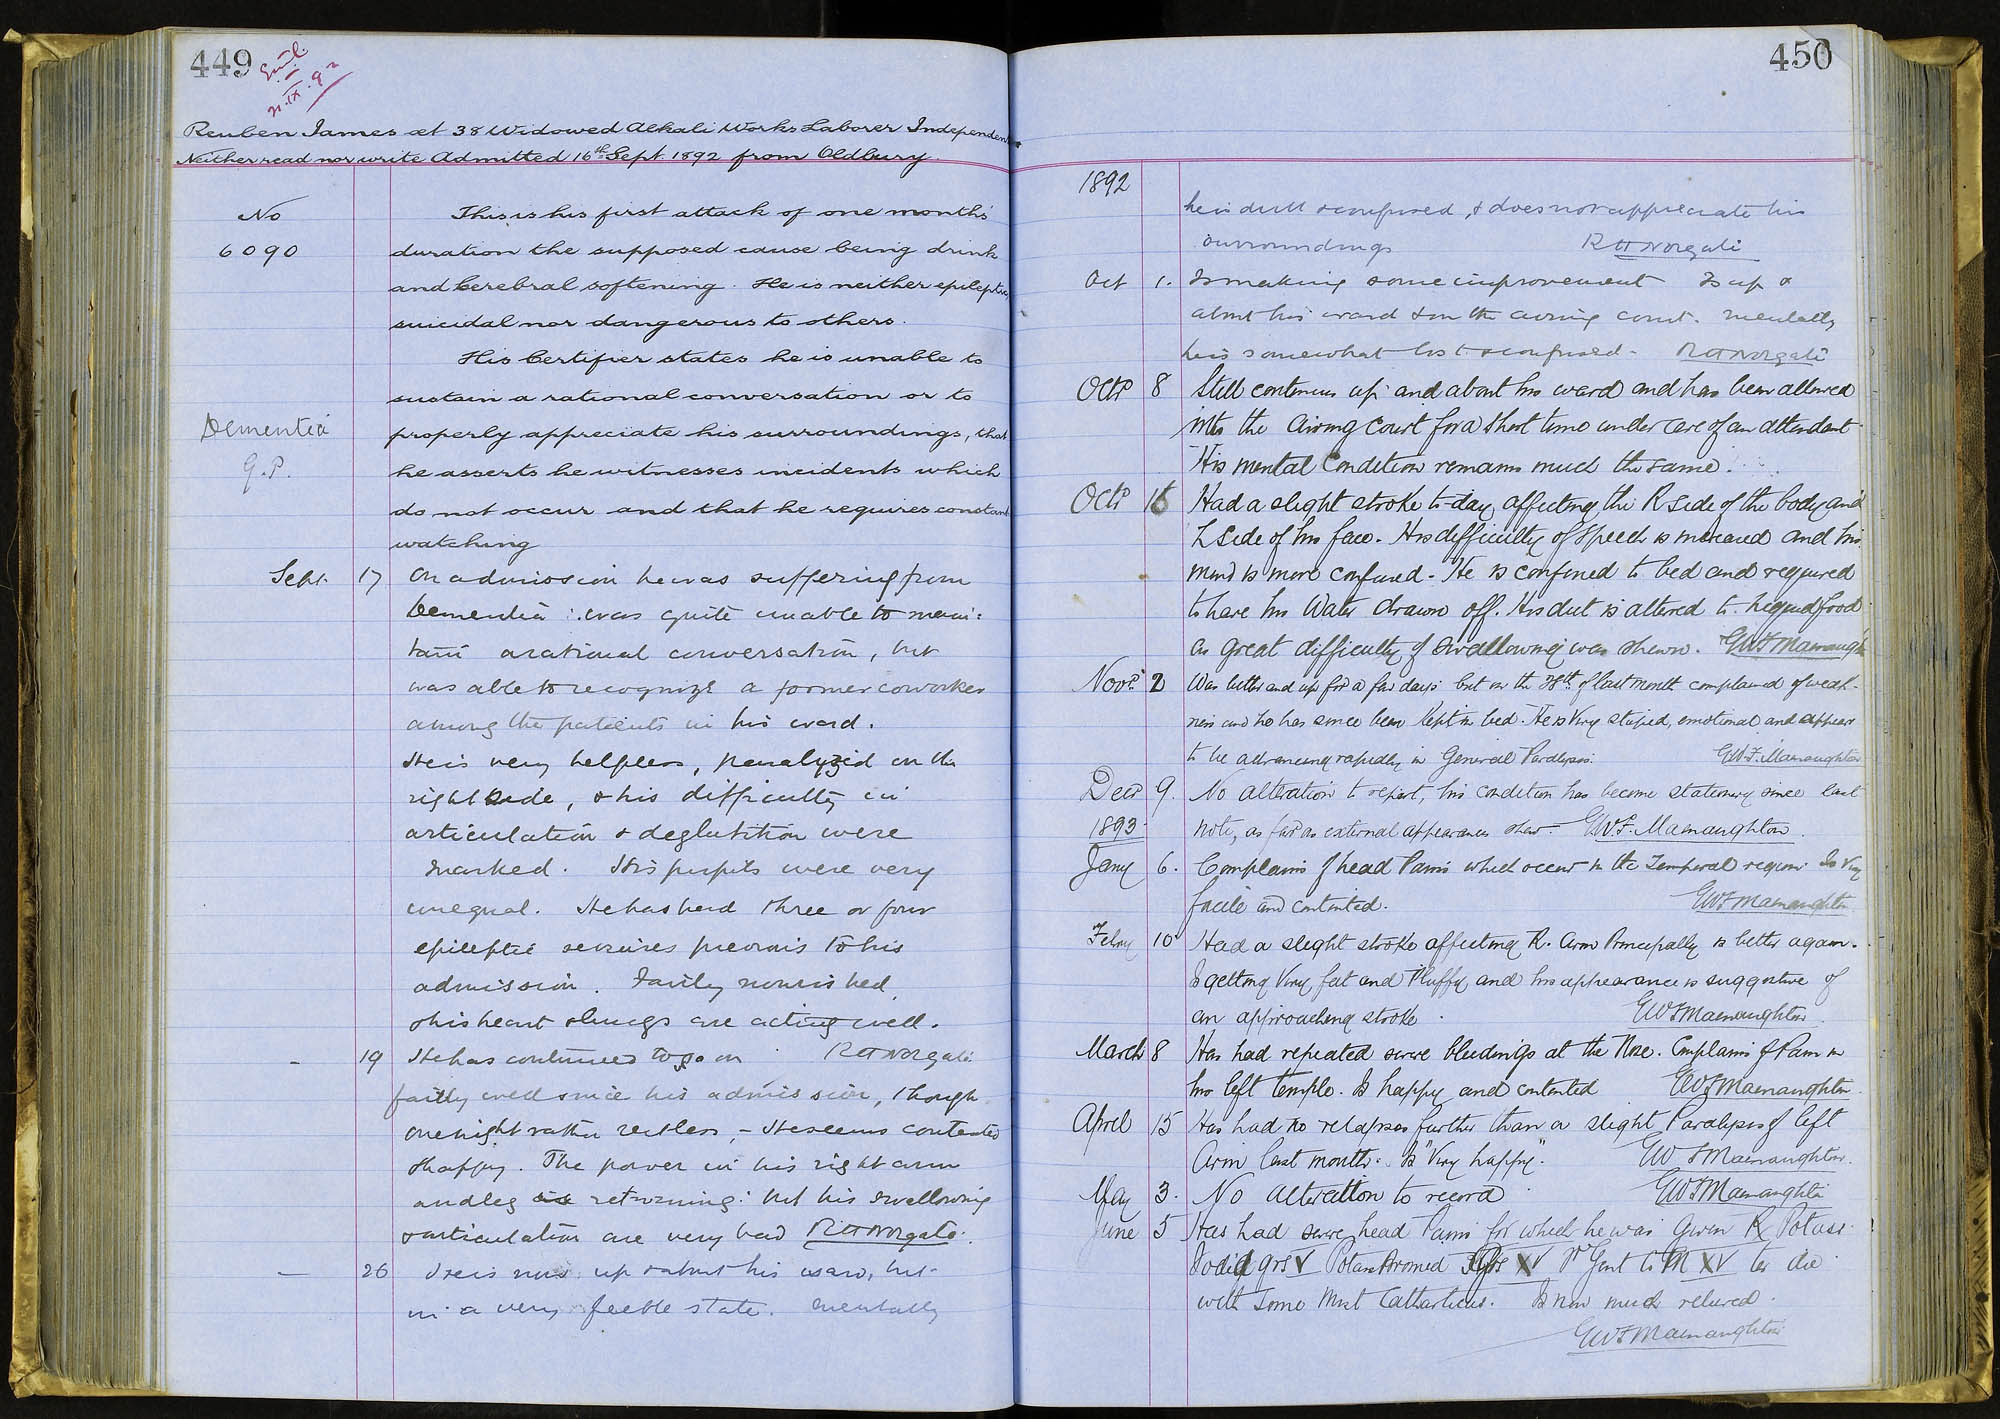 449
21.IX.92
Reuben James æt 38 Widowed Alkali Works Laborer Independent
Neither read nor write Admitted 16th Sept. 1892 from Oldbury.
No
6090
This is his first attack of one month's
duration the supposed cause being drink
and Cerebral softening. He is neither epileptic,
suicidal nor dangerous to others.
His Certifier states he is unable to
sustain a rational conversation or to
properly appreciate his surroundings, that
he asserts he witnesses incidents which
do not occur and that he requires constant
watching
Dementia
G.P.
Sept. 17 On admission he was suffering from
Dementia: was quite unable to main-
tain a rational conversation, but
was able to recognize a former coworker
among the patients in his ward.
He is very helpless, paralyzed on the
right side, & his difficulty in
articulation & deglutition were
marked. His pupils were very
unequal. He has had three or four
epileptic seizures previous to his
admission. Fairly nourished,
& his heart & lungs are acting well.
- 19 He has continued to go on
fairly well since his admission, though
one night rather restless, - He seems contented
& happy. The power in his right arm
and leg is returning: but his swallowing
& articulation are very bad
- 26 He is now up & about his ward, but
in a very feeble state. Mentally
450
1892
he is dull & confused, & does not appreciate his
surroundings
Oct 1. Is making some improvement Is up &
about his ward & in the airing court. Mentally
he is somewhat lost & confused -
Octr 8 Still continues up and about his ward and has been allowed
into the Airing Court for a short time under care of an attendant.
His mental Condition remains much the same.
Octr 16 Had a slight stroke to-day, affecting the R side of the body and
L side of his face. His difficulty of speech is increased and his
mind is more confused - He is confined to bed and required
to have his Water drawn off. His diet is altered to liquid food
as great difficulty of swallowing was shewn. GWF Macnaughton
Novr. 2 Was better and up for a few days but on the 28th of last month complained of weak-
ness and he has since been kept in bed. He is very stupid, emotional and appears
to be advancing rapidly in General Paralysis. GW.F. Macnaughton
Decr 9. No alteration to report, his condition has become stationary since last
1893. note, as far as external appearances shew - GW.F. Macnaughton.
Jany 6. Complains of head Pains which occur in the Temporal region. Is Very
facile and contented. GWF Macnaughton
Febry 10 Had a slight stroke affecting R. Arm Principally is better again.
Is getting Very fat and Puffy and his appearance is suggestive of
an approaching stroke. GWF Macnaughton
March 8 Has had repeated severe bleedings at the Nose. Complains of Pain in
his left temple. Is happy and contented GWF Macnaughton
April 15 Has had no relapses further than a slight Paralysis of left
Arm last month. Is "Very happy". GWF Macnaughton.
May 3. No alteration to record GWF Macnaughton
June 5 Has had severe head Pains for which he was given ℞ Potass
Iodid grs V Potass Bromid grs XV ter die
with some Mist Catharticus. Is now much relieved.
GWF Macnaughton